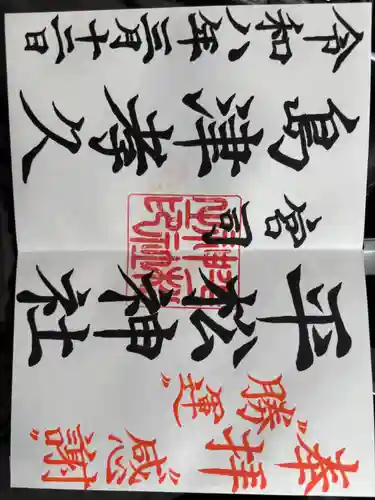 奉拝 "感謝"
"勝運"
平松神社
宮司
島津孝久
令和八年三月十二日